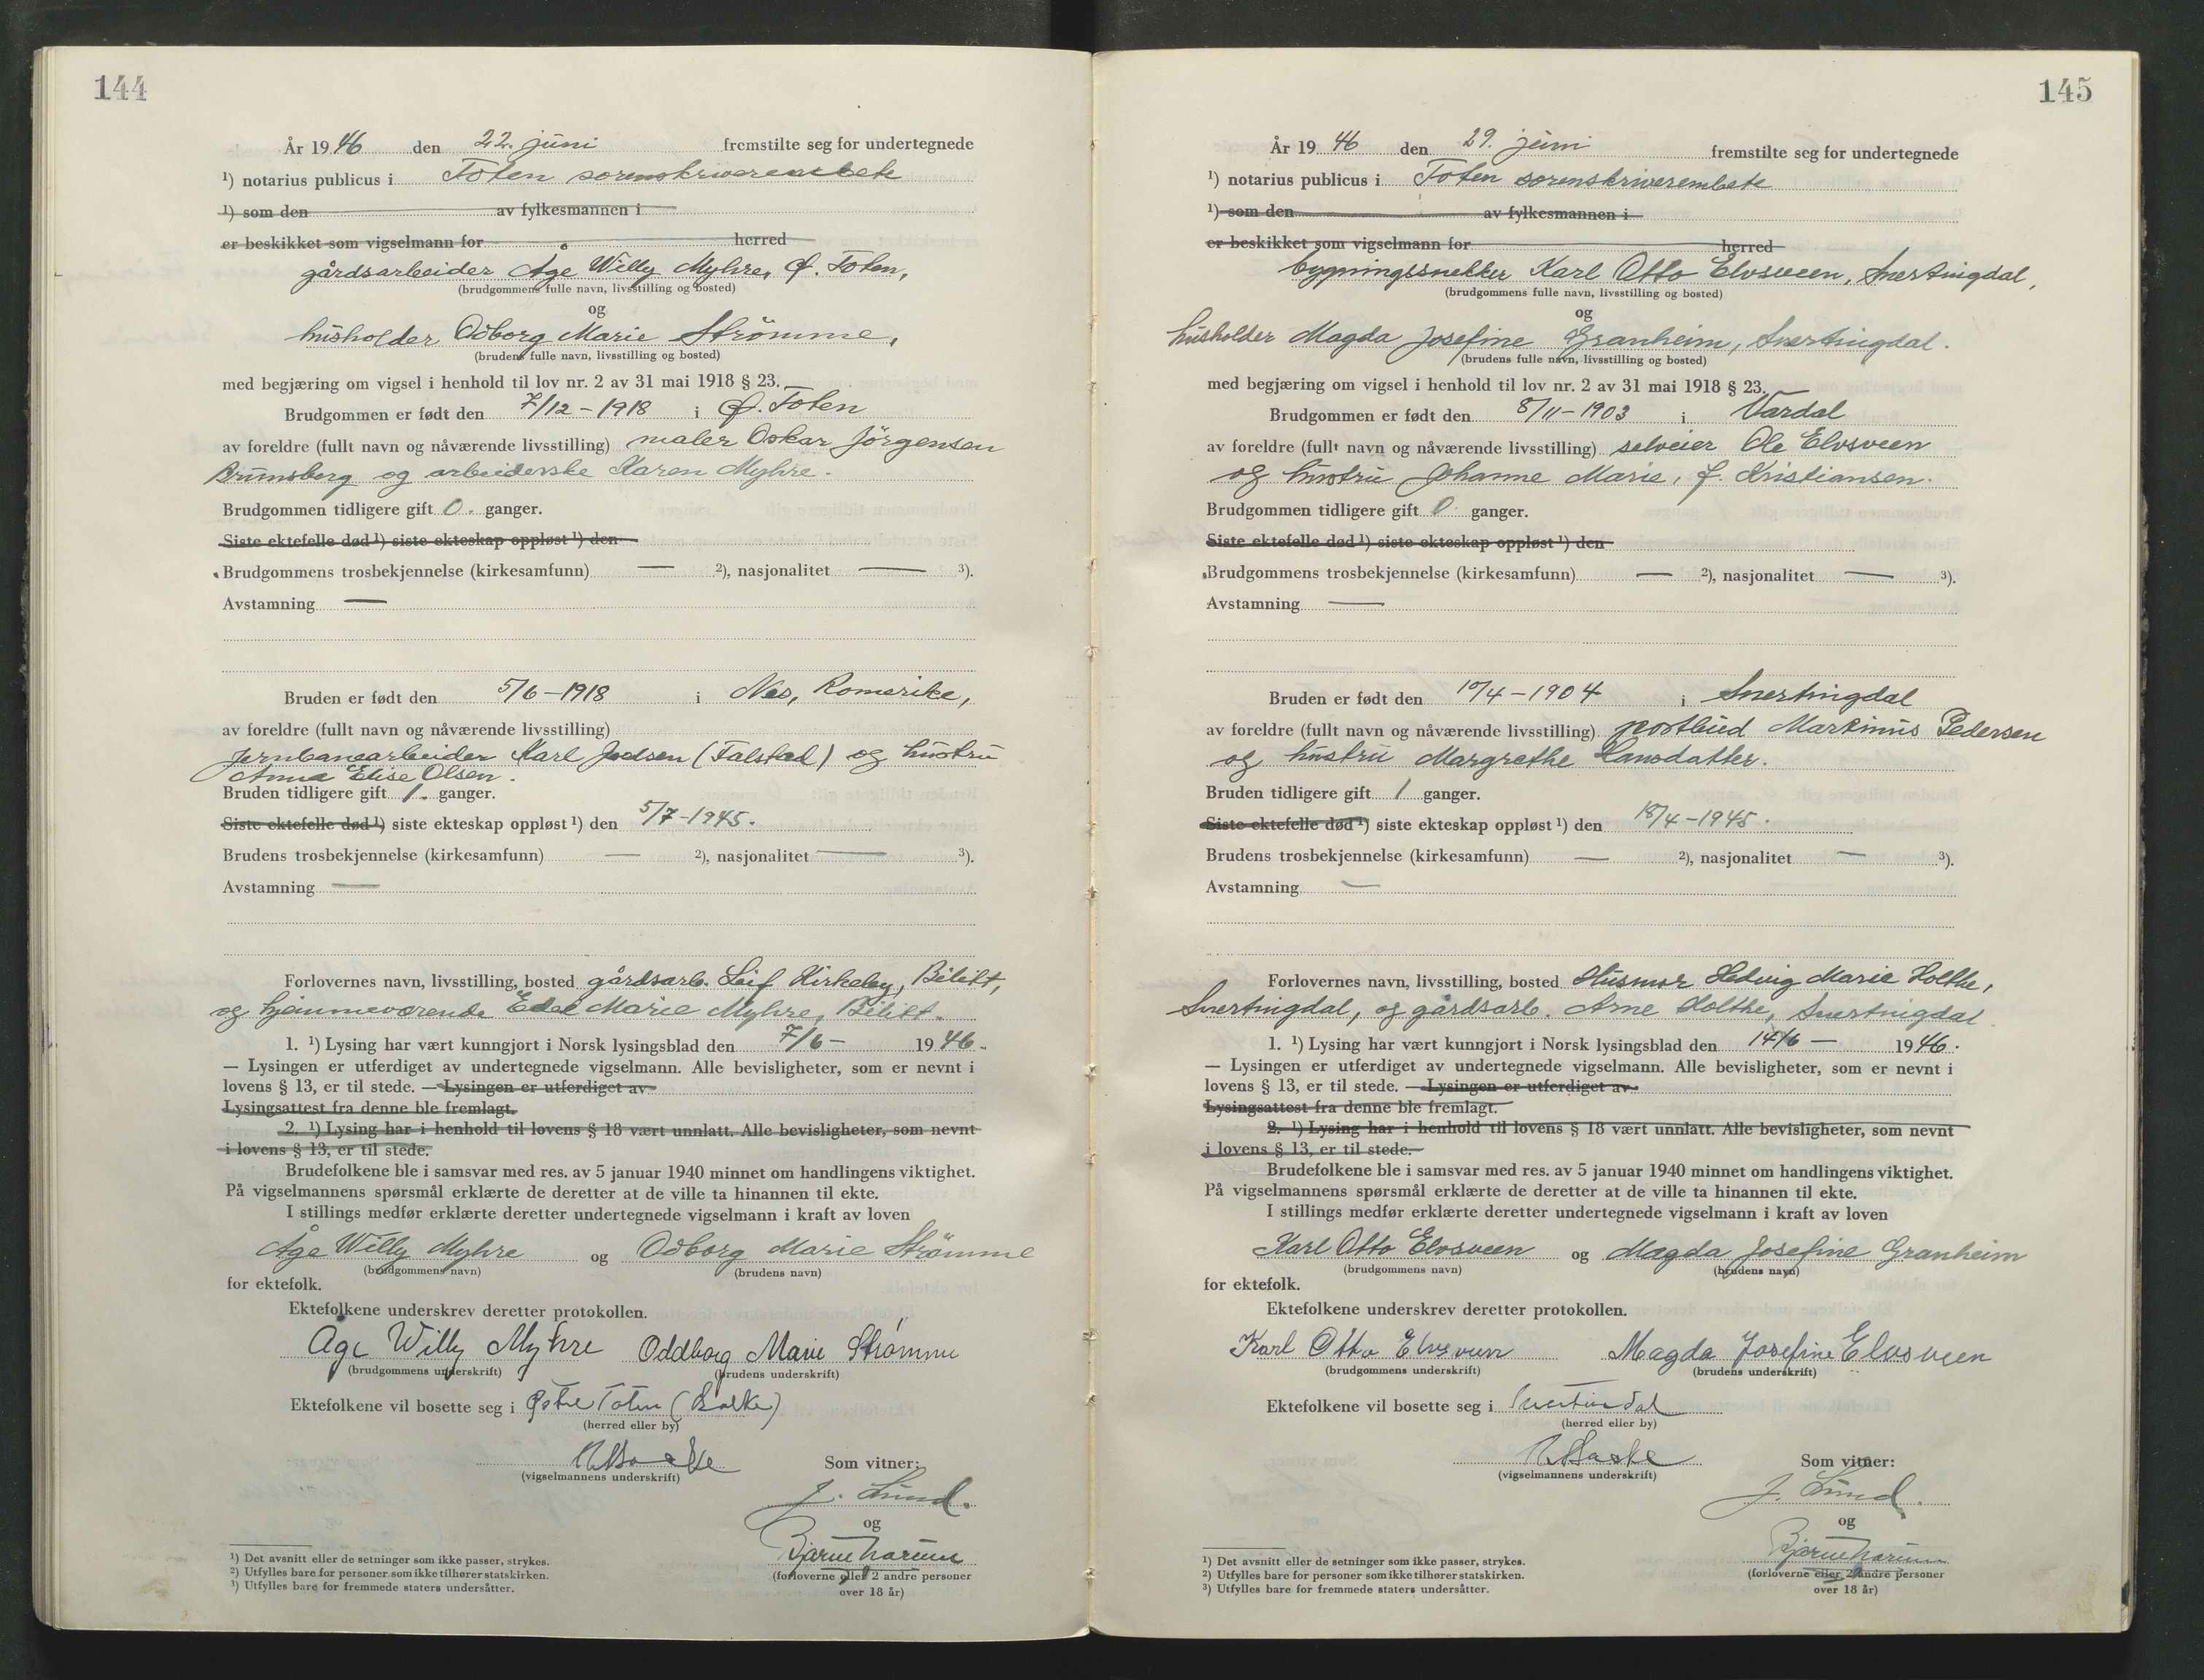 144
År 1946 den 22. juni fremstilte seg for undertegnede
¹) notarius publicus i Toten sorenskriverembete
¹) som den av fylkesmannen i
er beskikket som vigselmann for herred
gårdsarbeider Åge Willy Myhre, Ø. Toten,
(brudgommens fulle navn, livsstilling og bosted)
og
husholder Odborg Marie Strömme,
(brudens fulle navn, livsstilling og bosted)
med begjæring om vigsel i henhold til lov nr. 2 av 31 mai 1918 § 23.
Brudgommen er født den 7/12 - 1918 i Ø. Toten
av foreldre (fullt navn og nåværende livsstilling) maler Oskar Jörgensen
Brunsberg og arbeiderske Karen Myhre.
Brudgommen tidligere gift 0. ganger.
Siste ektefelle død ¹) siste ekteskap oppløst ¹) den
Brudgommens trosbekjennelse (kirkesamfunn) — ²), nasjonalitet — ³).
Avstamning —
Bruden er født den 5/6 - 1918 i Nes, Romerike,
av foreldre (fullt navn og nåværende livsstilling)
Jernbanearbeider Karl (Falstad) og hustru
Anna Elise Olsen.
Bruden tidligere gift 1. ganger.
Siste ektefelle død ¹) siste ekteskap oppløst ¹) den 5/7 - 1945.
Brudens trosbekjennelse (kirkesamfunn) — ²), nasjonalitet — ³).
Avstamning —
Forlovernes navn, livsstilling, bosted gårdsarb. Leif Kirkeby, Bilitt,
og hjemmeværende Edel Marie Myhre, Bilitt.
1. ¹) Lysing har vært kunngjort i Norsk lysingsblad den 7/6 - 1946.
— Lysingen er utferdiget av undertegnede vigselmann. Alle bevisligheter, som er nevnt i
lovens § 13, er til stede. — Lysingen er utferdiget av
Lysingsattest fra denne ble fremlagt.
2. ¹) Lysing har i henhold til lovens § 18 vært unnlatt. Alle bevisligheter, som nevnt
i lovens § 13, er til stede.
Brudefolkene ble i samsvar med res. av 5 januar 1940 minnet om handlingens viktighet.
På vigselmannens spørsmål erklærte de deretter at de ville ta hinannen til ekte.
I stillings medfør erklærte deretter undertegnede vigselmann i kraft av loven
Åge Willy Myhre og Odborg Marie Strömme
(brudgommens navn) (brudens navn)
for ektefolk.
Ektefolkene underskrev deretter protokollen.
Åge Willy Myhre Oddborg Marie Strømme
(brudgommens underskrift) (brudens underskrift)
Ektefolkene vil bosette seg i Østre Toten (Balke)
(herred eller by)
(vigselmannens underskrift)
Som vitner:
J. Lund.
og
Bjarne
(forloverne eller 2 andre personer
over 18 år)
¹) Det avsnitt eller de setninger som ikke passer, strykes.
²) Utfylles bare for personer som ikke tilhører statskirken.
³) Utfylles bare for fremmede staters undersåtter.
145
År 1946 den 29. juni fremstilte seg for undertegnede
¹) notarius publicus i Toten sorenskriverembete
¹) som den av fylkesmannen i
er beskikket som vigselmann for herred
bygningssnekker Karl Otto Elvsveen, Snertingdal,
(brudgommens fulle navn, livsstilling og bosted)
og
husholder Magda Josefine Granheim, Snertingdal.
(brudens fulle navn, livsstilling og bosted)
med begjæring om vigsel i henhold til lov nr. 2 av 31 mai 1918 § 23.
Brudgommen er født den 8/11 - 1903 i Vardal
av foreldre (fullt navn og nåværende livsstilling) selveier Ole Elvsveen
og hustru Johanne Marie, f. Kristiansen.
Brudgommen tidligere gift 0 ganger.
Siste ektefelle død ¹) siste ekteskap oppløst ¹) den
Brudgommens trosbekjennelse (kirkesamfunn) — ²), nasjonalitet — ³).
Avstamning —
Bruden er født den 10/4 - 1904 i Snertingdal
av foreldre (fullt navn og nåværende livsstilling) postbud Martinus Pedersen
og hustru Margrethe Hansdatter.
Bruden tidligere gift 1 ganger.
Siste ektefelle død ¹) siste ekteskap oppløst ¹) den 18/4 - 1945.
Brudens trosbekjennelse (kirkesamfunn) — ²), nasjonalitet — ³).
Avstamning —
Forlovernes navn, livsstilling, bosted Husmor Hedvig Marie Holthe,
Snertingdal, og gårdsarb. Arne Holthe, Snertingdal
1. ¹) Lysing har vært kunngjort i Norsk lysingsblad den 14/6 — 1946.
— Lysingen er utferdiget av undertegnede vigselmann. Alle bevisligheter, som er nevnt i
lovens § 13, er til stede. — Lysingen er utferdiget av
Lysingsattest fra denne ble fremlagt.
2. ¹) Lysing har i henhold til lovens § 18 vært unnlatt. Alle bevisligheter, som nevnt
i lovens § 13, er til stede.
Brudefolkene ble i samsvar med res. av 5 januar 1940 minnet om handlingens viktighet.
På vigselmannens spørsmål erklærte de deretter at de ville ta hinannen til ekte.
I stillings medfør erklærte deretter undertegnede vigselmann i kraft av loven
Karl Otto Elvsveen og Magda Josefine Granheim
(brudgommens navn) (brudens navn)
for ektefolk.
Ektefolkene underskrev deretter protokollen.
Karl Otto Elvsveen Magda Josefine Elvsveen
(brudgommens underskrift) (brudens underskrift)
Ektefolkene vil bosette seg i
(herred eller by)
(vigselmannens underskrift)
Som vitner:
J. Lund.
og
Bjarne
(forloverne eller 2 andre personer
over 18 år)
¹) Det avsnitt eller de setninger som ikke passer, strykes.
²) Utfylles bare for personer som ikke tilhører statskirken.
³) Utfylles bare for fremmede staters undersåtter.